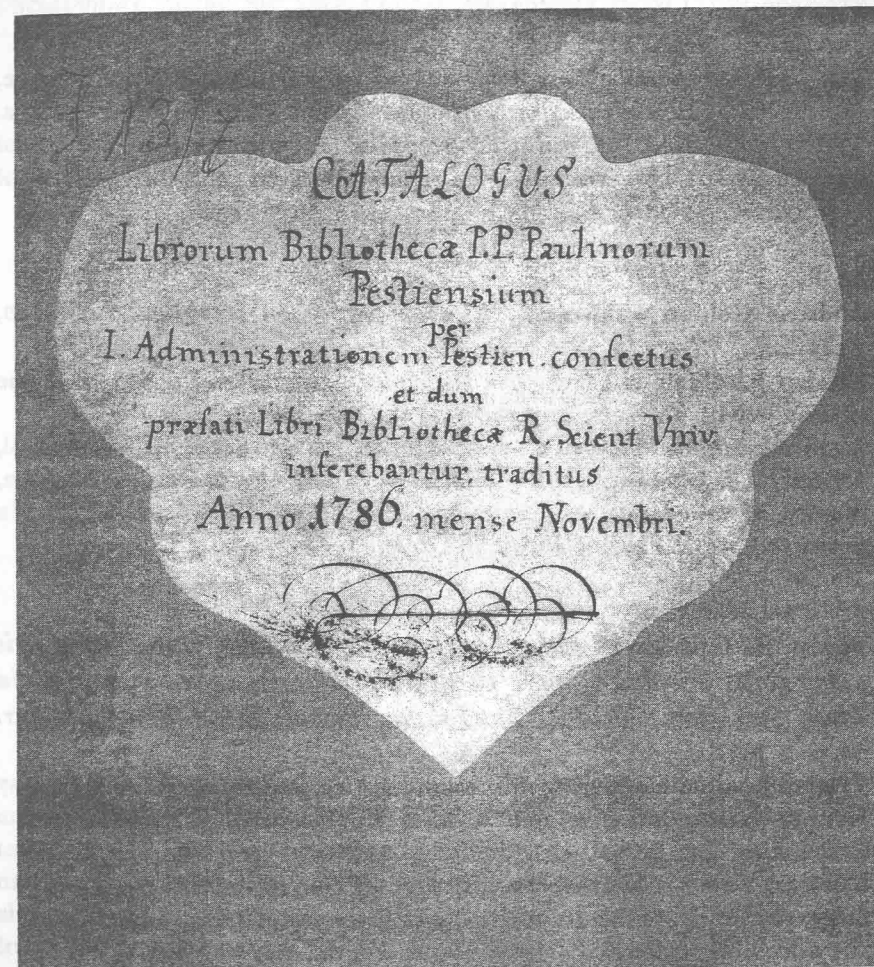 J 13/7
CATALOGUS
Librorum Bibliothecæ P.P. Paulinorum
Pestiensium
per
I. Administrationem Pestien. confectus
et dum
præfati Libri Bibliothecæ R. Scient Univ.
inferebantur, traditus
Anno 1786. mense Novembri.